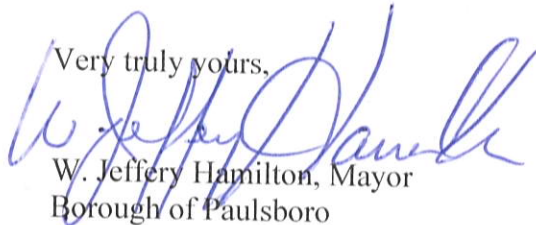 Very truly yours,
W. Jeffery Hamilton
W. Jeffery Hamilton, Mayor
Borough of Paulsboro